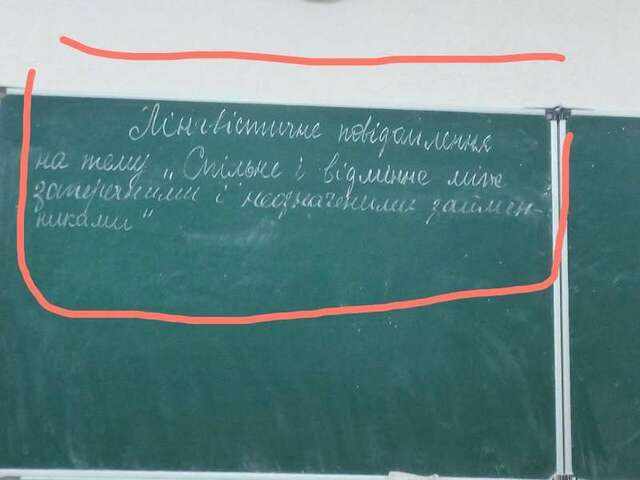 Лінгвістичне повідомлення
на тему „Спільне і відмінне між
заперечними і неозначеними займен-
никами"